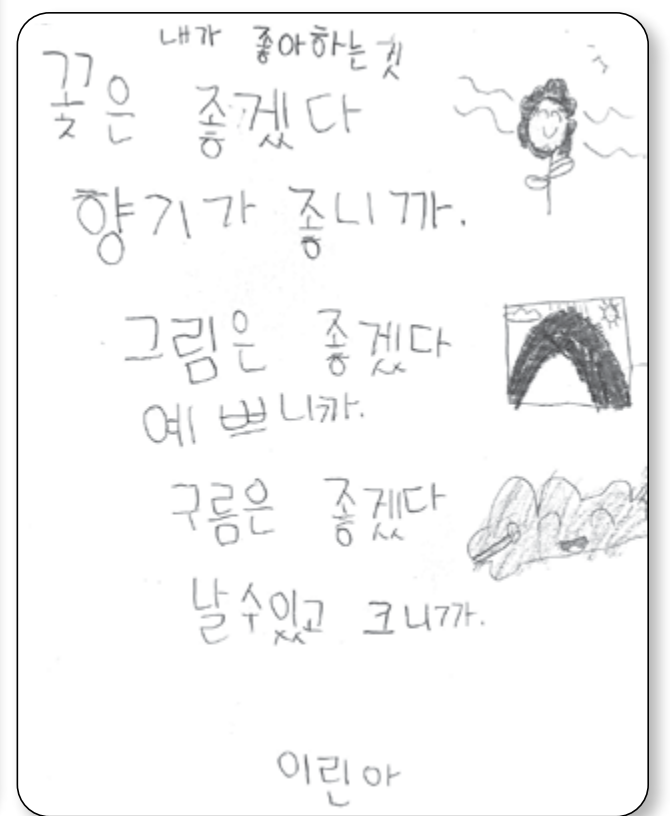 내가 좋아하는 것
꽃은 좋겠다
향기가 좋니까.
그림은 좋겠다
예쁘니까.
구름은 좋겠다
날 수 있고 크니까.
이린아